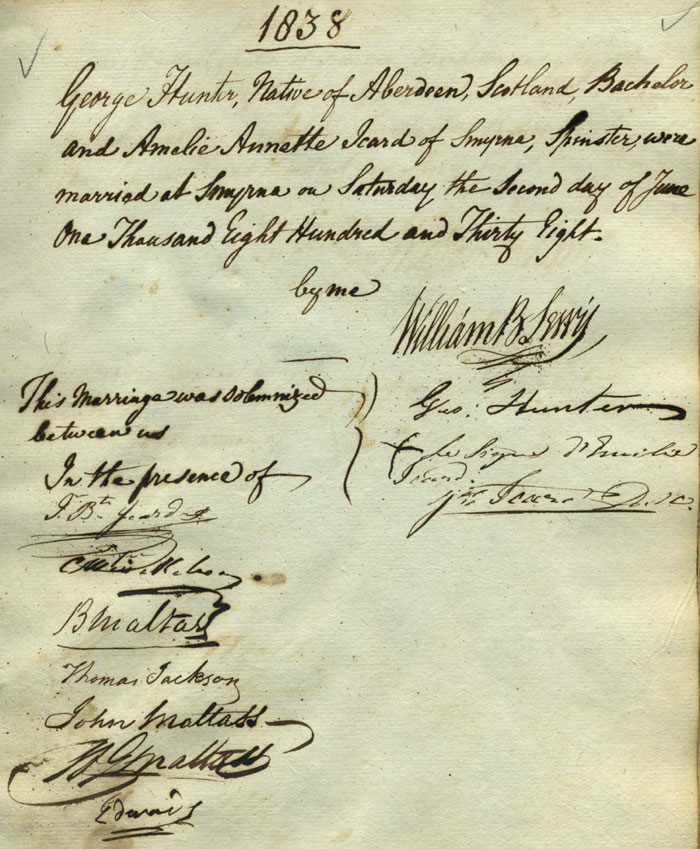 1838
George Hunter, Native of Aberdeen, Scotland, Bachelor
and Amelie Annette Icard of Smyrna, Spinster, were
married at Smyrna on Saturday the Second day of June
One Thousand Eight Hundred and Thirty Eight.
by me
William B. Lewis
This Marriage was solemnized
between us
Geo. Hunter
+ le Signe d'Emilie
Icard.
In the presence of
J. Bte Icard
B Maltass
Thomas Jackson
John Maltass
W G Maltass
Edwards